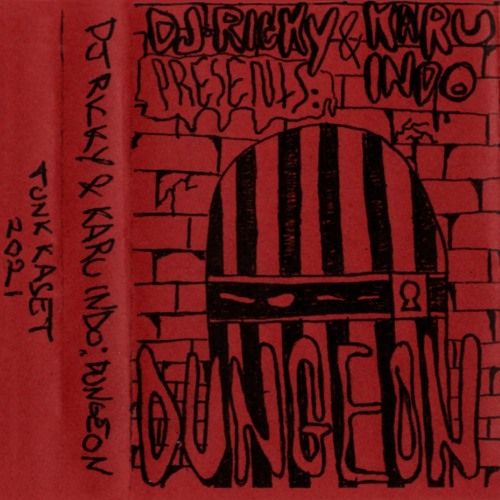 DJ RICKY & KARU INDO: DUNGEON
JUNK KASET
2021
DJ RICKY & KARU
PRESENTS: INDO
DUNGEON